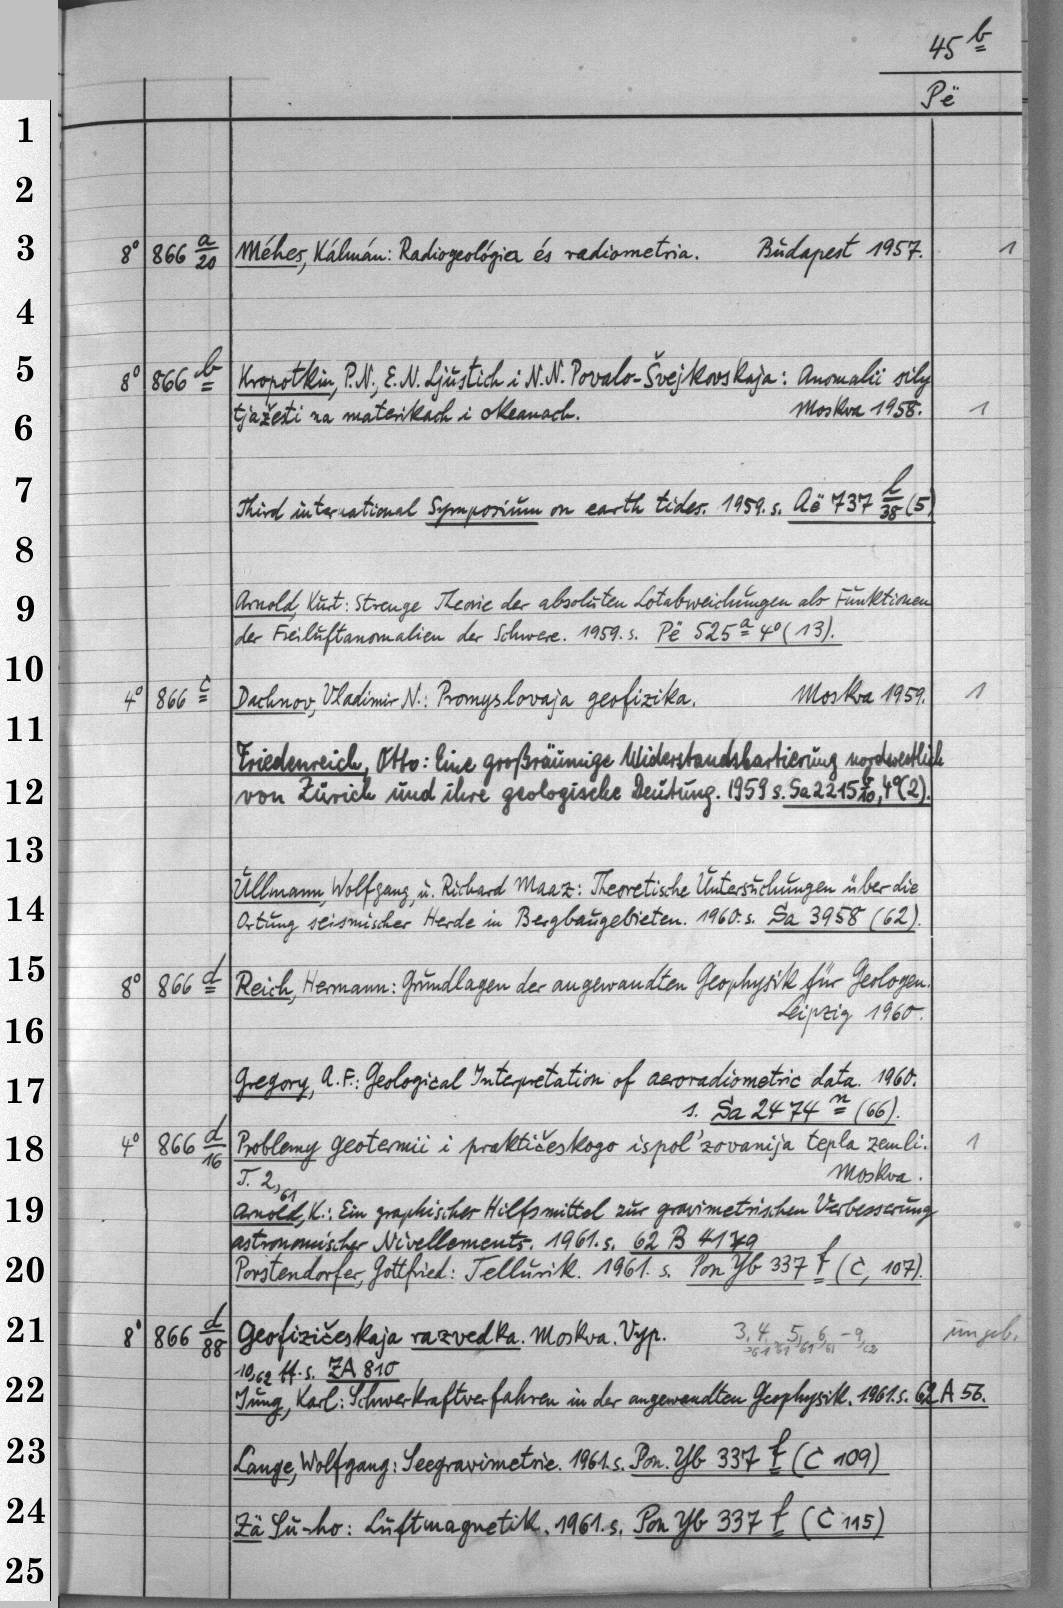 45 b
Pë
1
2
3 8° 866 a/20 Méhes, Kálmán: Radiogeológia és radiometria. Budapest 1957. 1
4
5 8° 866 b Kropotkin, P.N., E.N. Ljustich i N.N. Povalo-Švejkovskaja: Anomalii sily
6 tjažesti na materikach i okeanach. Moskva 1958. 1
7 Third international Symposium on earth tides. 1959. s. Aë 737 l/38 (5)
8
9 Arnold, Kurt: Strenge Theorie der absoluten Lotabweichungen als Funktionen
der Freiluftanomalien der Schwere. 1959. s. Pë 525 a 4° (13).
10 4° 866 c Dachnov, Vladimir N.: Promyslovaja geofizika. Moskva 1959. 1
11 Friedenreich, Otto: Eine großräumige Widerstandskartierung nordwestlich
12 von Zürich und ihre geologische Deutung. 1959 s. Sa 2215 /10, 4° (2).
13
Ullmann, Wolfgang, u. Richard Maaz: Theoretische Untersuchungen über die
14 Ortung seismischer Herde in Bergbaugebieten. 1960. s. Sa 3958 (62).
15 8° 866 d Reich, Hermann: Grundlagen der angewandten Geophysik für Geologen.
16 Leipzig 1960.
17 Gregory, A.F.: Geological Interpretation of aeroradiometric data. 1960.
s. Sa 2474 n (66).
18 4° 866 d/16 Problemy geotermii i praktičeskogo ispol'zovanija tepla zemli. 1
T. 2,61 Moskva.
19 Arnold, K.: Ein graphischer Hilfsmittel zur gravimetrischen Verbesserung
astronomischer Nivellements. 1961. s. 62 B 4179
20 Porstendorfer, Gottfried: Tellurik. 1961. s. Pon Yb 337 f (C, 107).
21 8° 866 d/88 Geofizičeskaja razvedka. Moskva. Vyp. 3,61 4,61 5,61 6,61 -9,62 ungeb.
10,62 ff. s. ZA 810
22 Jung, Karl: Schwerkraftverfahren in der angewandten Geophysik. 1961. s. 62 A 56.
23 Lange, Wolfgang: Seegravimetrie. 1961. s. Pon. Yb 337 f (C 109)
24 Zä Su-ho: Luftmagnetik. 1961. s. Pon Yb 337 f (C 115)
25